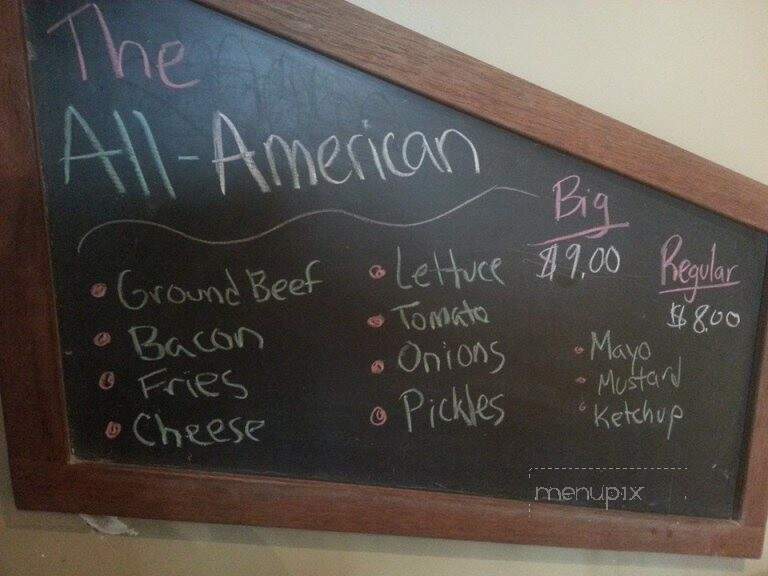 The
All-American
Big
$9.00
Regular
$8.00
• Ground Beef
• Bacon
• Fries
• Cheese
• Lettuce
• Tomato
• Onions
• Pickles
• Mayo
• Mustard
• Ketchup
menupix